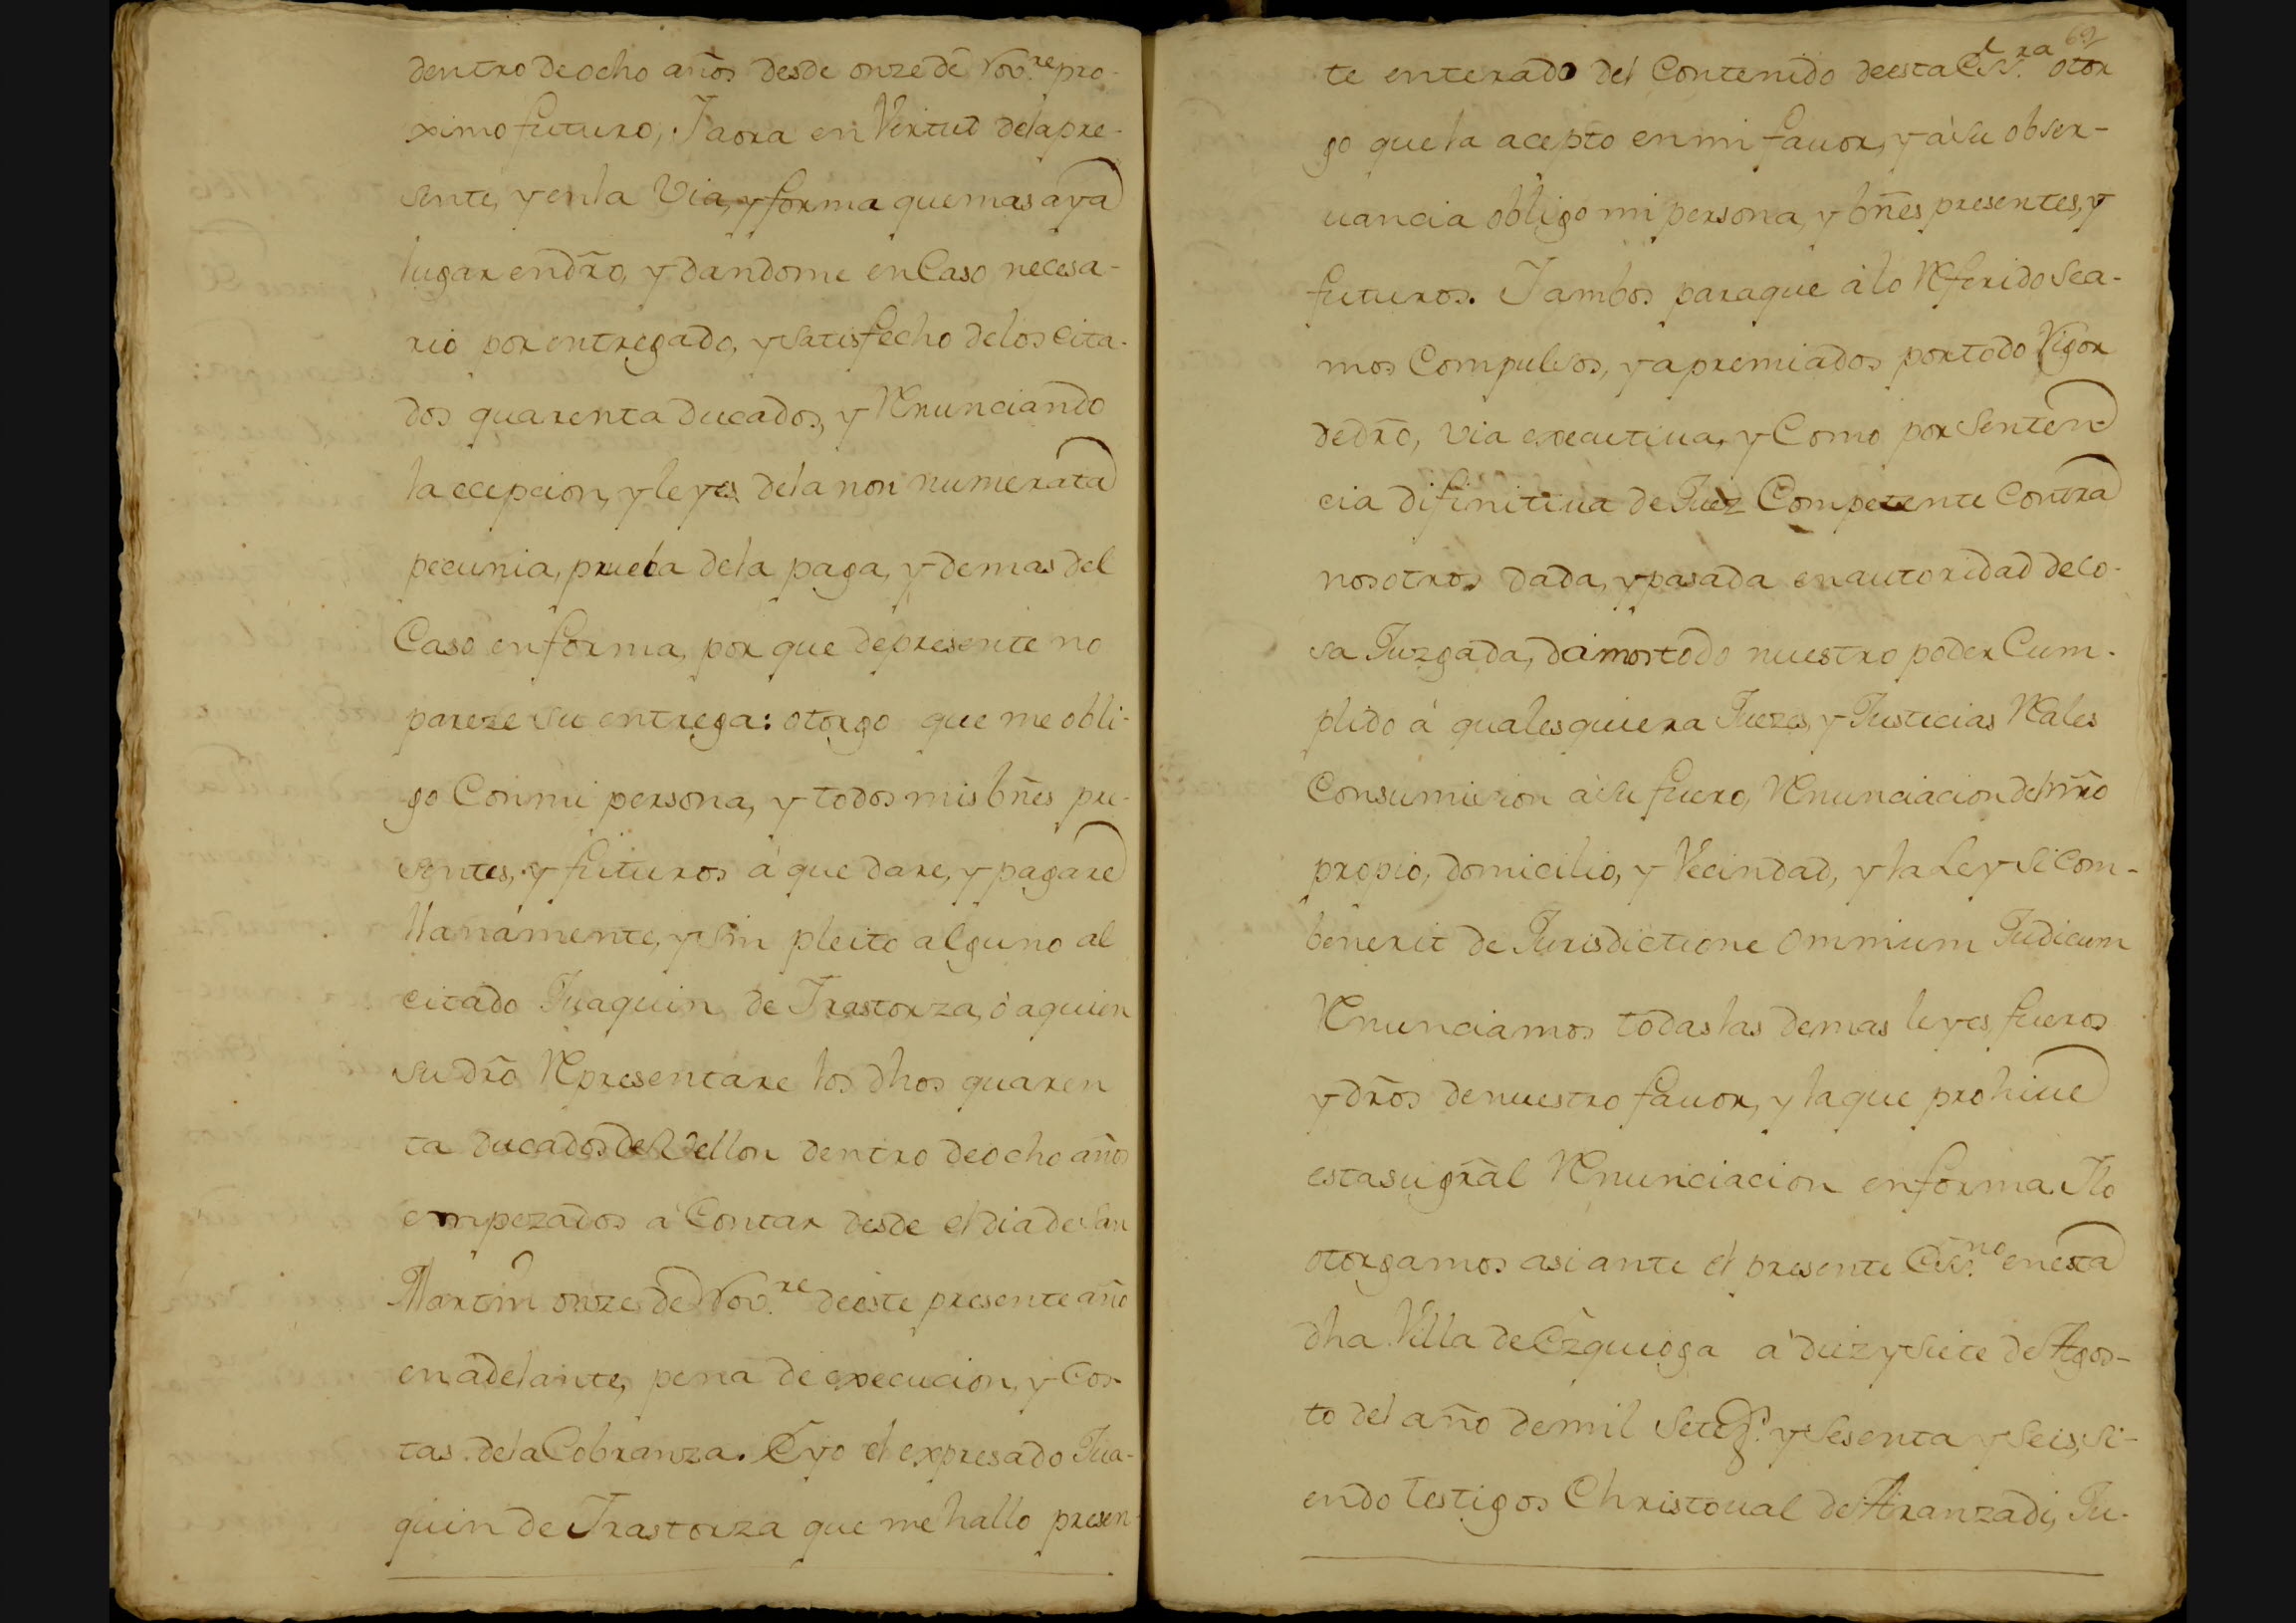 dentro de ocho años desde onze de Nov.re pro-
ximo futuro, Y aora en Virtud dela pre-
sente, y en la Via, y forma que mas aya
lugar en dr̃o, y dandome en Caso necesa-
rio por entregado, y satisfecho delos cita-
dos quarenta ducados, y Renunciando
la ecepcion, y leyes dela non numerata
pecunia, prueba dela paga, y demas del
Caso en forma, por que de presente no
pareze su entrega: otorgo que me obli-
go Con mi persona, y todos mis bñes pre-
sentes, y futuros á que dare, y pagare
llanamente, y sin pleito alguno al
citado Juaquin de Irastorza, ó aquien
su dr̃o Representare los dhos quaren
ta ducados de Vellon dentro de ocho años
empezados á Contar desde el dia de San
Martin onze de Nov.re de este presente año
en adelante, pena de execucion, y Cos-
tas dela Cobranza. E yo el expresado Jua-
quin de Irastorza que me hallo presen-
69
te enterado del Contenido de esta Es.ra otor
go que la acepto en mi fauor, y á su obser-
uancia obligo mi persona, y bñes presentes, y
futuros. Y ambos paraque á lo Referido Sea-
mos Compulsos, y apremiados por todo Vigor
de dr̃o, via executiua, y Como por Senten-
cia difinitiua de Juez Competente Contra
nosotros dada, y pasada en autoridad de co-
sa Juzgada, damos todo nuestro poder Cum-
plido á qualesquiera Juezes, y Justicias Rales
Con sumision á su fuero, Renunciacion del nr̃o
propio, domicilio, y Vecindad, y la Ley Si Com-
benerit de Jurisdictione Omnium Judicum
Renunciamos todas las demas leyes, fueros
y dr̃os de nuestro fauor, y la que prohiue
esta su gr̃al Renunciacion en forma. Y lo
otorgamos asi ante el presente Es.no en esta
dha Villa de Ezquioga á diez y Siete de Agos-
to del año de mil Setez.s y Sesenta y Seis, si-
endo testigos Christoual de Aranzadi, Ju-